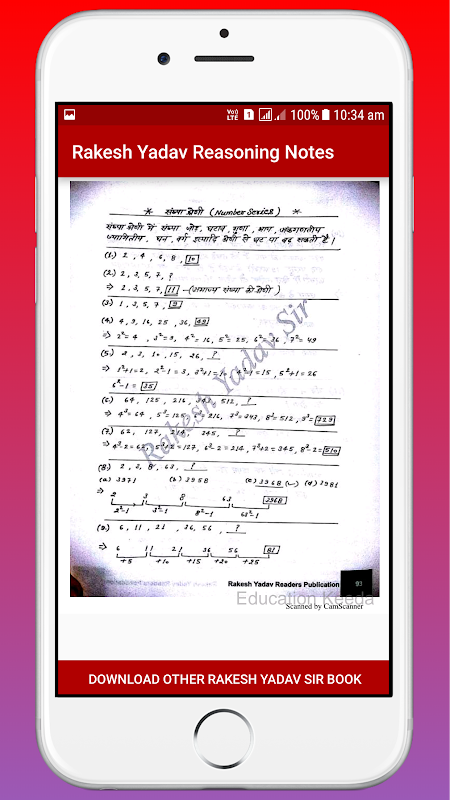 Vo)) LTE 1 100% 10:34 am
Rakesh Yadav Reasoning Notes
* संख्या श्रेणी (Number Series) *
संख्या श्रेणी में संख्या जोड़, घटाव, गुणा, भाग,
ज्यामितीय, घन, वर्ग इत्यादि श्रेणी से घट या बढ़ सकती है।
(1.) 2, 4, 6, 8, 10
(2.) 2, 3, 5, 7, ?
⇒ 2, 3, 5, 7, 11 - (अभाज्य संख्या की श्रेणी)
(3.) 1, 3, 5, 7, 9
(4.) 4, 9, 16, 25, 36, 49
⇒ 2² = 4, 3² = 9, 4² = 16, 5² = 25, 6² = 36, 7² = 49
(5.) 2, 3, 10, 15, 26, ?
⇒ 1²+1=2, 2²-1=3, 3²+1=10, 4²-1=15, 5²+1=26
6²-1 = 35
(6.) 64, 125, 216, 343, 512, ?
⇒ 4³=64, 5³=125, 6³=216, 7³=343, 8³=512, 9³=729
(7.) 62, 127, 214, 345, ?
⇒ 4³-2=62, 5³+2=127, 6³-2=214, 7³+2=345, 8³-2=510
(8.) 2, 3, 8, 63, ?
(a) 3971 (b) 3958 (c) 3968 (d) 3981
⇒ 2 3 8 63 3968
2²-1 3²-1 8²-1 63²-1
(9.) 6, 11, 21, 36, 56, ?
⇒ 6 11 21 36 56 81
+5 +10 +15 +20 +25
Rakesh Yadav Sir
Rakesh Yadav Readers Publication 93
Education Keeda
Scanned by CamScanner
DOWNLOAD OTHER RAKESH YADAV SIR BOOK